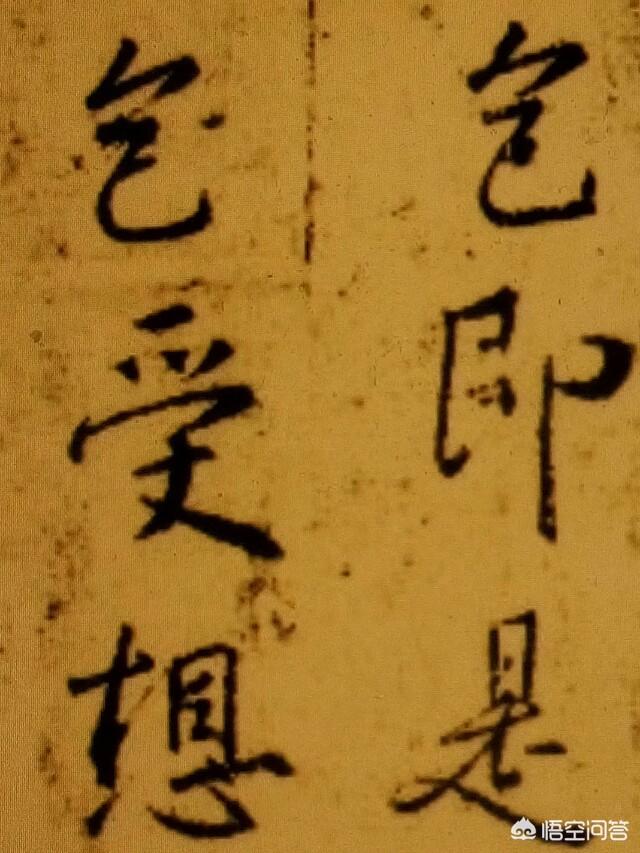 色即是
色受想
悟空问答